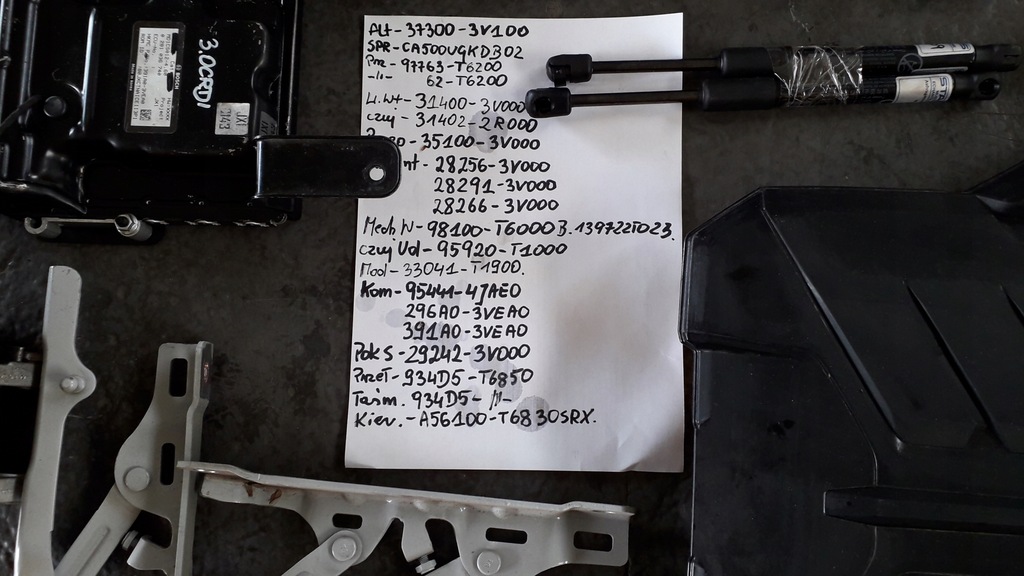 3.0CRDI
BOSCH
ALT - 37300-3V100
SPR - CA500VGKDB02
Prz - 97763-T6200
-11- 62-T6200
31400-3V000
czuj - 31402-2R000
35100-3V000
nt - 28256-3V000
28291-3V000
28266-3V000
Mech W - 98100-T6000 B.139722T023.
czuj Ud - 95920-T1000
Mod - 33041-T1900.
Kom - 95441-4JAE0
296A0-3VEA0
391A0-3VEA0
Pok S - 29242-3V000
Przeł - 934D5-T6850
Taśm. 934D5- -11-
Kier. - A56100-T6830SRX.